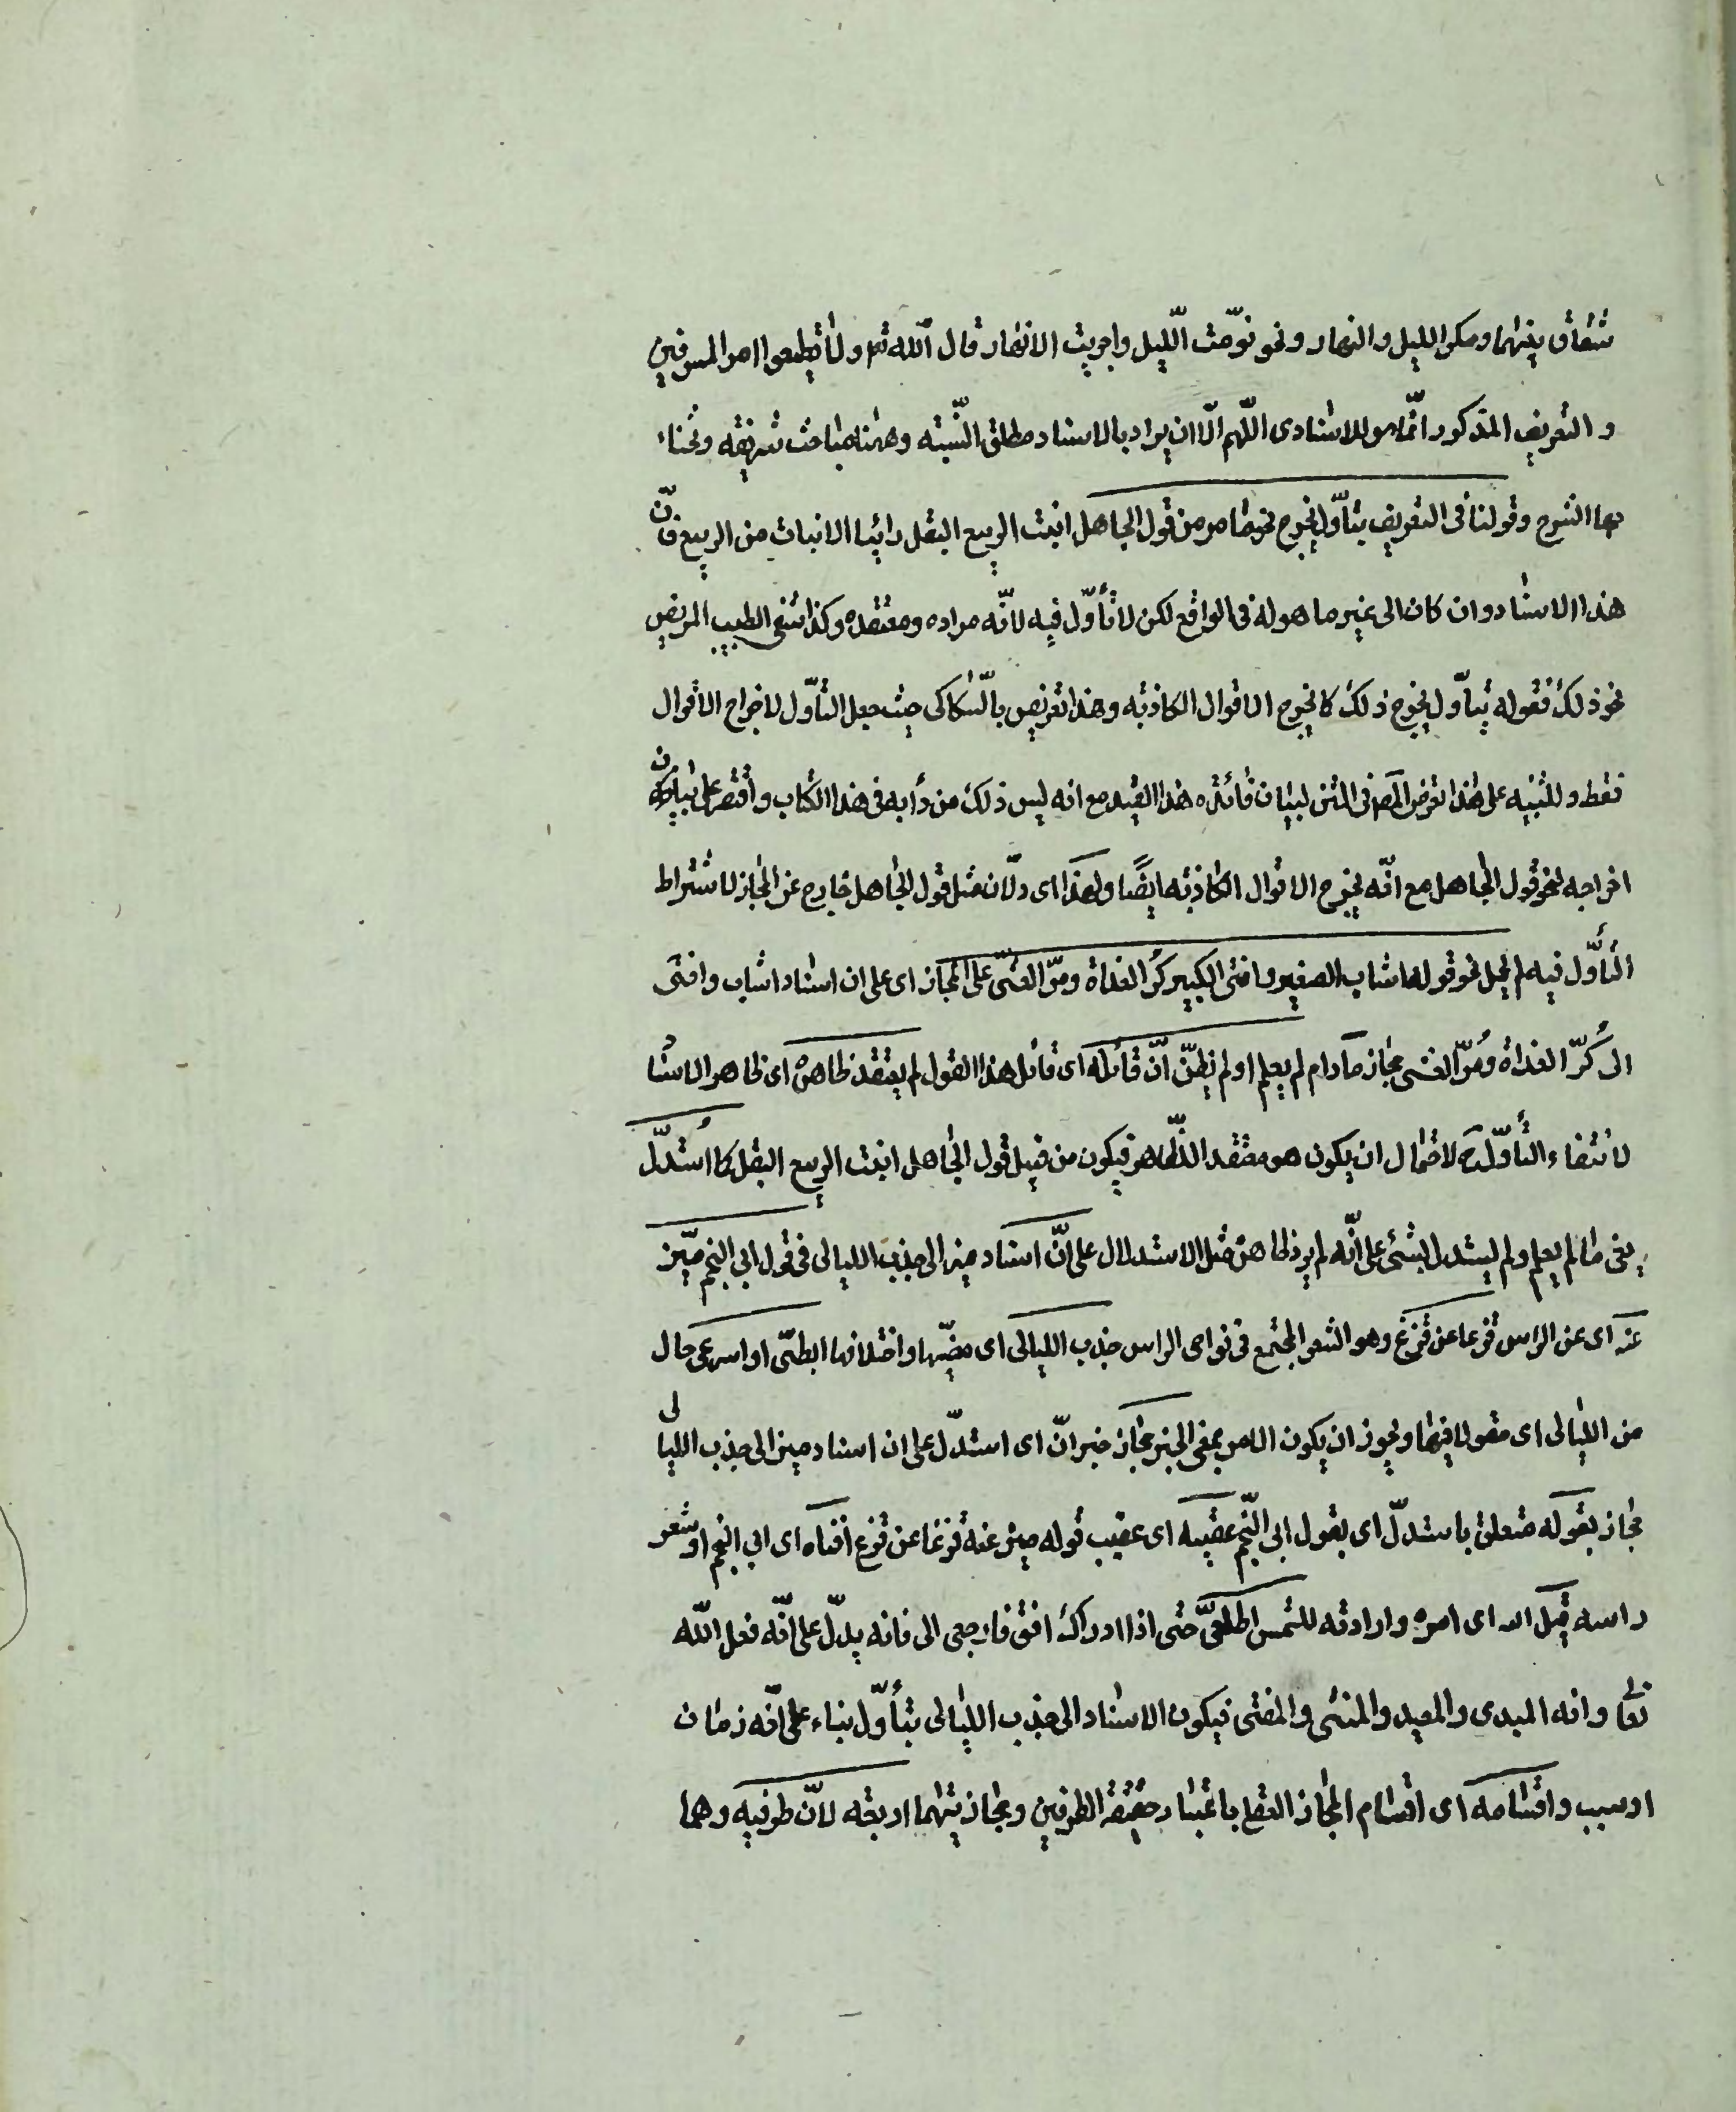 شقاق بينهما ومكر الليل والنهار ونحو نوّمت الّليل واجريت الانهار قال اللّه تع ولا تطيعوا امر المسرفين
و التعريف المذكور انّما هو للاسنادى اللّهم الّا ان يراد بالاسناد مطلق النّسبته وههنا مباحث شريفه وشحناء
بها الشرح وقولنا فى التعريف بتأوّل يخرج نحو ما مر من قول الجاهل انبت الربيع البقل رائيا الانبات من الربيع فانّ
هذا الاسناد وان كان الى غير ما هو له فى الواقع لكن لا تأوّل فيه لانّه مراده ومعتقده وكذا شفى الطبيب المريض
نحو ذلك فقوله بتأوّل يخرج ذلك كما يخرج الاقوال الكاذبه وهذا تعريض بالسّكاكى حيث جعل التأوّل لاخراج الاقوال
فقط وللتنبيه على هذا تعرض المص فى المتن لبيان فائده هذا القيد مع انه ليس ذلك من دأبه فى هذا الكتاب واقتصر على بيان
اخراجه لنحو قول الجاهل مع انّه يخرج الاقوال الكاذبه ايضًا ولهذا اى ولانّ مثل قول الجاهل خارج عن المجاز لاشتراط
التأوّل فيه لم يحمل نحو قوله اشاب الصغير وافنى الكبير كرّ الغداة ومرّ العشىّ على المجاز اى على ان اسناد اشاب وافنى
الى كرّ الغداة ومرّ العشى مجاز مادام لم يعلم او لم يظنّ انّ قائله اى قائل هذا القول لم يعتقد ظاهره اى ظاهر الاسناد
لانتفاء التأوّل لاحتمال ان يكون هو معتقد الظّاهر فيكون من قبيل قول الجاهل انبت الربيع البقل كما استدلّ
يعنى ما لم يعلم ولم يستدل بشئ على انّه لم يرد ظاهره مثل الاستدلال على انّ اسناد ميز الى جذب الليالى فى قول ابى النجم ميّز
عنه اى عن الراس قزعا عن قزع وهو الشعر المجتمع فى نواحى الراس جذب الليالى اى مضيّها واختلافها ابطئى او اسرعى حال
من الليالى اى مقولا فيها ويجوز ان يكون الامر بمعنى الخبر مجاز خبر انّ اى استدلّ على ان اسناد ميز الى جذب الليالى
مجاز بقوله متعلق باستدلّ اى بقول ابى النّجم عقيبه اى عقيب قوله ميز عنه قزعا عن قزع افناه اى ابى النجم او شعر
راسه قيل الله اى امره وارادته للشمس اطلعىّ حتى اذا ادراك افق فارجعى الى فانه يدلّ على انّه فعل اللّه
تعالى وانه المبدى والمعيد والمنشى والمفنى فيكون الاسناد الى جذب الليالى بتأوّل بناء على انّه زمان
او سبب واقسامه اى اقسام المجاز العقلى باعتبار حقيقة الطرفين ومجازيتهما اربعه لانّ طرفيه وهما